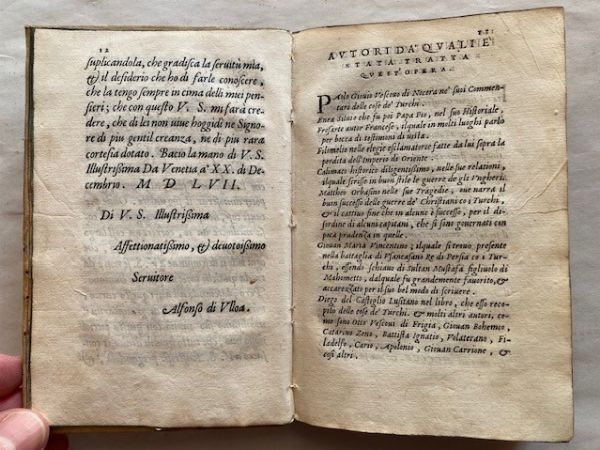 12
suplicandola, che gradisca la seruitù mia,
& il desiderio che ho di farle conoscere,
che la tengo sempre in cima delli miei pen-
sieri; che con questo V. S. mi farà cre-
dere, che di lei non uiue hoggidi ne Signore
di piu gentil creanza, ne di piu rara
cortesia dotato. Bacio la mano di V. S.
Illustrissima Da Venetia a' XX. di De-
cembrio. M D LVII.
Di V. S. Illustrissima
Affettionatissimo, & deuotissimo
Seruitore
Alfonso di Vlloa.
AVTORI DA' QVALI E'
STATA TRATTA
QVEST'OPERA.
Paolo Giouio Vescouo di Nocera ne' suoi Commen-
tari delle cose de' Turchi.
Enea Siluio che fu poi Papa Pio, nel suo Historiale.
Frosarte autor Francese, ilquale in molti luoghi parlo
per bocca di testimoni di uista.
Filomelio nelle elegie esclamatorie fatte da lui sopra la
perdita dell'Imperio di Oriente.
Calimaco historico diligentissimo, nelle sue relationi,
ilquale scrisse in buon stile le guerre de gli Vngheri.
Mattheo Orbasino nelle sue Tragedie, oue narra il
buon successo delle guerre de' Christiani co i Turchi,
& il cattiuo fine che in alcune è successo, per il di-
sordine di alcuni capitani, che si sono gouernati con
poca prudenza in quelle.
Giouan Maria Vincentino; ilquale si trouò presente
nella battaglia di Vsancasano Re di Persia co i Tur-
chi, essendo schiauo di Sultan Mustafà figliuolo di
Mahometto, dalquale fu grandemente fauorito, &
accarezzato per il suo bel modo di scriuere.
Diego del Castiglio Lusitano nel libro, che esso reco-
pilo delle cose de' Turchi. & molti altri autori, co-
me sono Otto Vescouo di Frigia, Giouan Bohemico,
Catarino Zeno, Battista Ignatio, Volaterano, Fi-
ladelfo, Cario, Apolonio, Giouan Carrione, &
così altri.